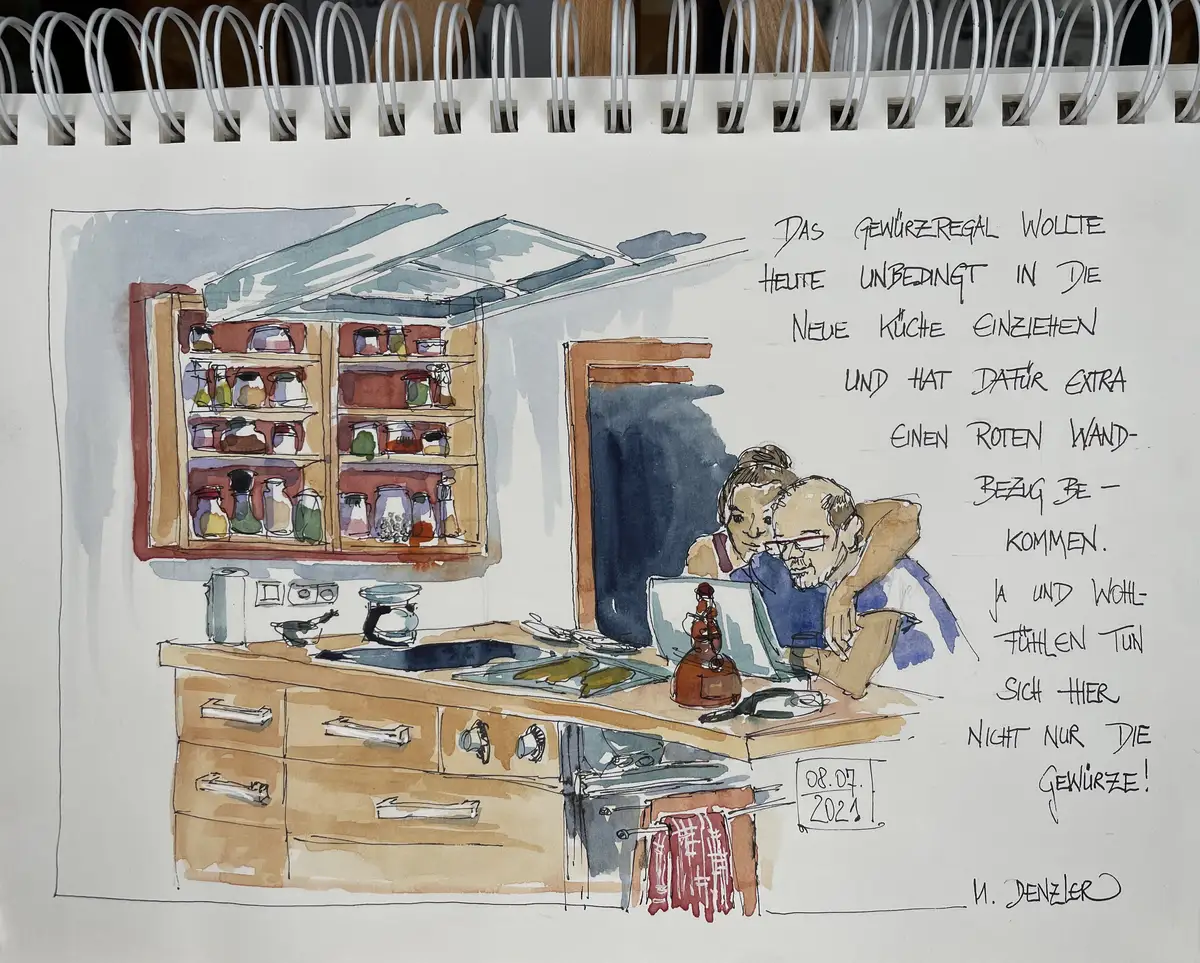 DAS GEWÜRZREGAL WOLLTE
HEUTE UNBEDINGT IN DIE
NEUE KÜCHE EINZIEHEN
UND HAT DAFÜR EXTRA
EINEN ROTEN WAND-
BEZUG BE-
KOMMEN.
JA UND WOHL-
FÜHLEN TUN
SICH HIER
NICHT NUR DIE
GEWÜRZE!
08.07.
2021
H. DENZLER